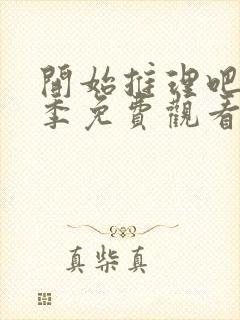 開始推理吧
季免費觀看
真柴真